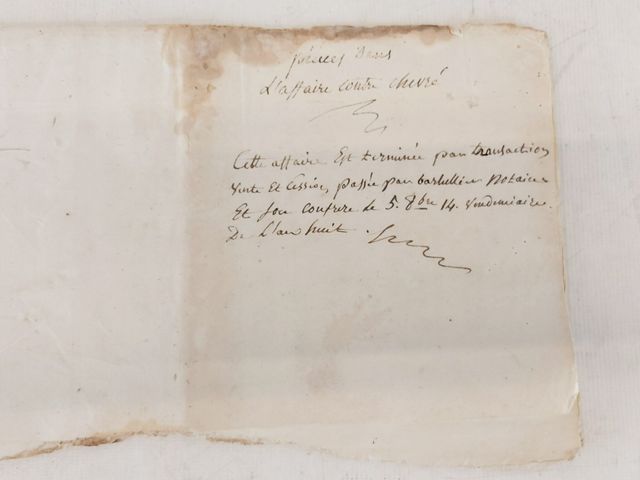 pièces dans
L'affaire contre chevré
Cette affaire Est terminée par transaction
vente Et Cession, passée par barbullier Notaire
Et son confrere le 5. 8bre 14. vendemiaire
De L'an huit.